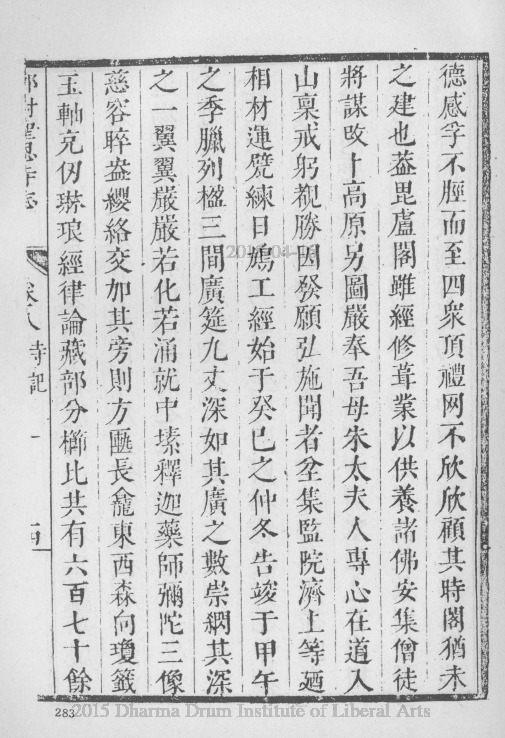 德感孚不脛而至四衆頂禮网不欣欣顧其時閣猶未
之建也葢毘盧閣雖經修葺業以供養諸佛安集僧徒
將謀改卜高原另圖嚴奉吾母朱太夫人專心在道入
山稟戒躬覩勝因發願弘施聞者坌集監院濟上等廼
相材運甓練日鳩工經始于癸巳之仲冬告竣于甲午
之季臘列楹三間廣筵九丈深如其廣之數崇綱其深
之一翼翼嚴嚴若化若涌就中塐釋迦藥師彌陀三像
慈容睟盎纓絡交加其旁則方匭長龕東西森向瓊籤
玉軸充仞琳琅經律論藏部分櫛比共有六百七十餘
寺志
卷八 寺記 一 四
283
2015 Dharma Drum Institute of Liberal Arts